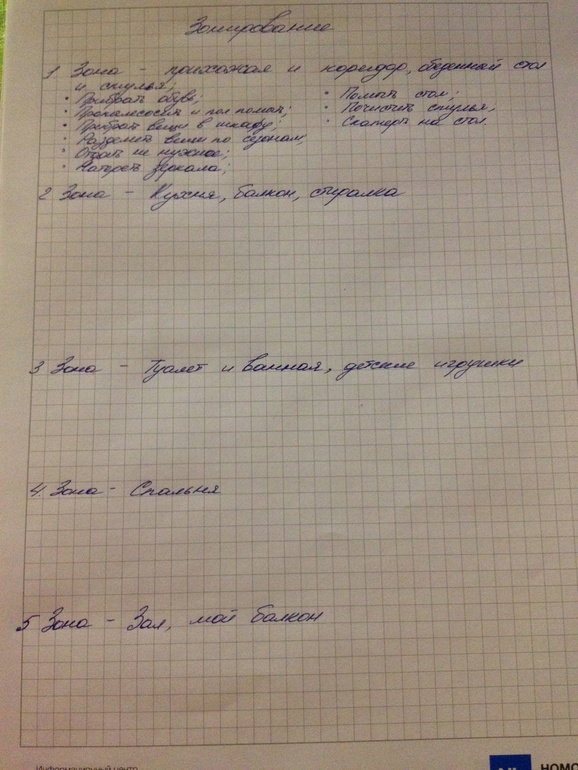 Зонирование
1 Зона - прихожая и коридор, обеденный стол
и стулья;
• Прибрать обувь;
• Пропылесосить и пол помыть;
• Прибрать вещи в шкафу;
• Разделить вещи по сезонам;
• Отдать не нужное;
• Натереть зеркала;
• Помыть стол;
• Почистить стулья;
• Скатерть на стол.
2 Зона - Кухня, балкон, стиралка
3 Зона - Туалет и ванная, детские игрушки
4. Зона - Спальня
5 Зона - Зал, мой балкон
Информационный центр
НОМО